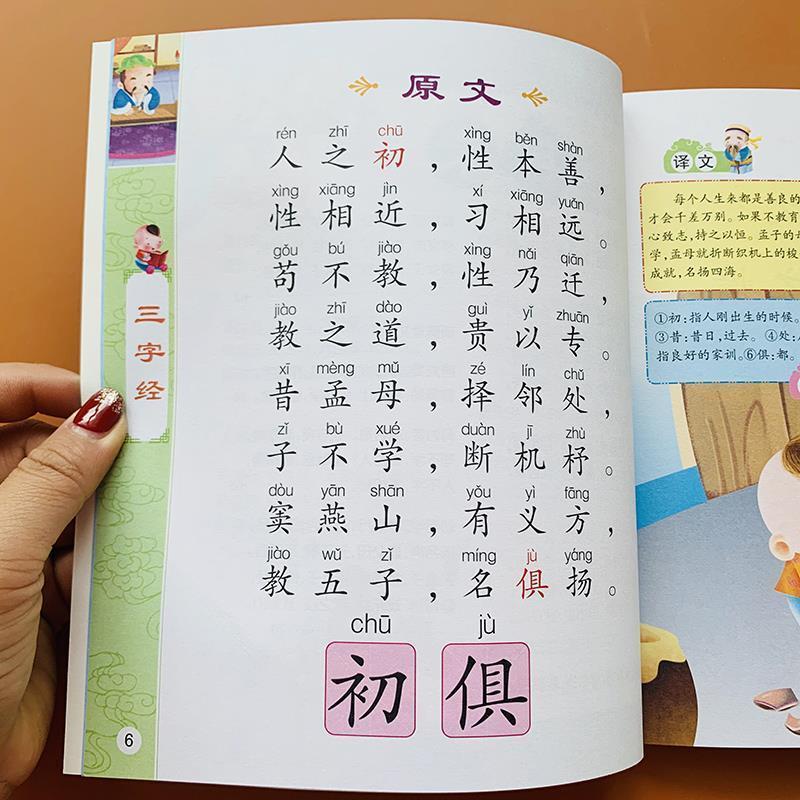 三字经
原文
rén zhī chū xìng běn shàn
人之初，性本善，
xìng xiāng jìn xí xiāng yuǎn
性相近，习相远。
gǒu bú jiào xìng nǎi qiān
苟不教，性乃迁，
jiào zhī dào guì yǐ zhuān
教之道，贵以专。
xī mèng mǔ zé lín chǔ
昔孟母，择邻处，
zǐ bù xué duàn jī zhù
子不学，断机杼。
dòu yān shān yǒu yì fāng
窦燕山，有义方，
jiào wǔ zǐ míng jù yáng
教五子，名俱扬。
chū jù
初 俱
6
译文
每个人生来都是善良的
才会千差万别。如果不教育
心致志，持之以恒。孟子的
学，孟母就折断织机上的梭
成就，名扬四海。
①初：指人刚出生的时候。
③昔：昔日，过去。④处：
指良好的家训。⑥俱：都。